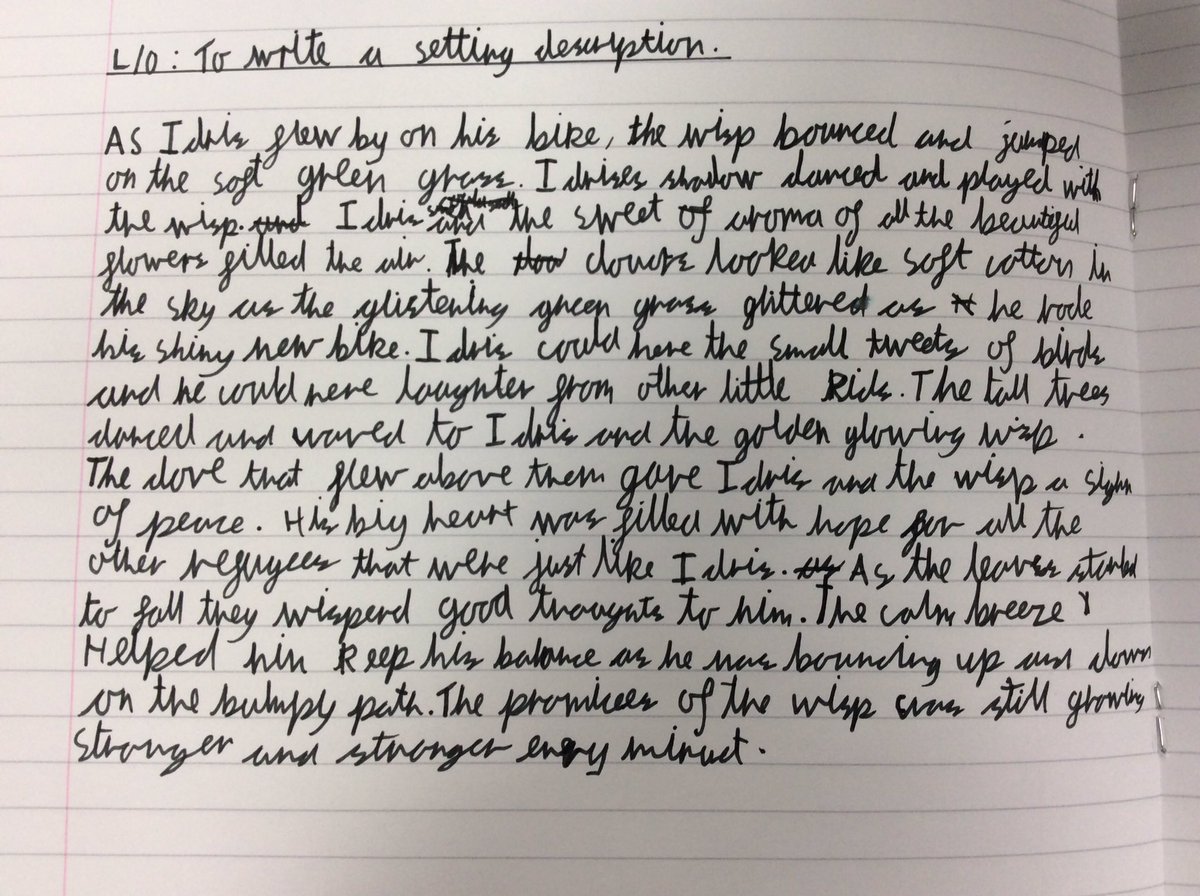 L/O: To write a setting description.
As Idris flew by on his bike, the wisp bounced and jumped
on the soft green grass. Idrises shadow danced and played with
the wisp. and Idris and the sweet of aroma of all the beautiful
flowers filled the air. The clouds looked like soft cotton in
the sky as the glistening green grass glittered as he rode
his shiny new bike. Idris could here the small tweets of birds
and he could here laughter from other little Kids. The tall trees
danced and waved to Idris and the golden glowing wisp.
The dove that flew above them gave Idris and the wisp a sighn
of peace. His big heart was filled with hope for all the
other refugees that were just like Idris. As the leaves started
to fall they wisperd good thoughts to him. The calm breeze
Helped him Keep his balance as he was bouncing up and down
on the bumpy path. The promices of the wisp was still growing
stronger and stronger every minuet.